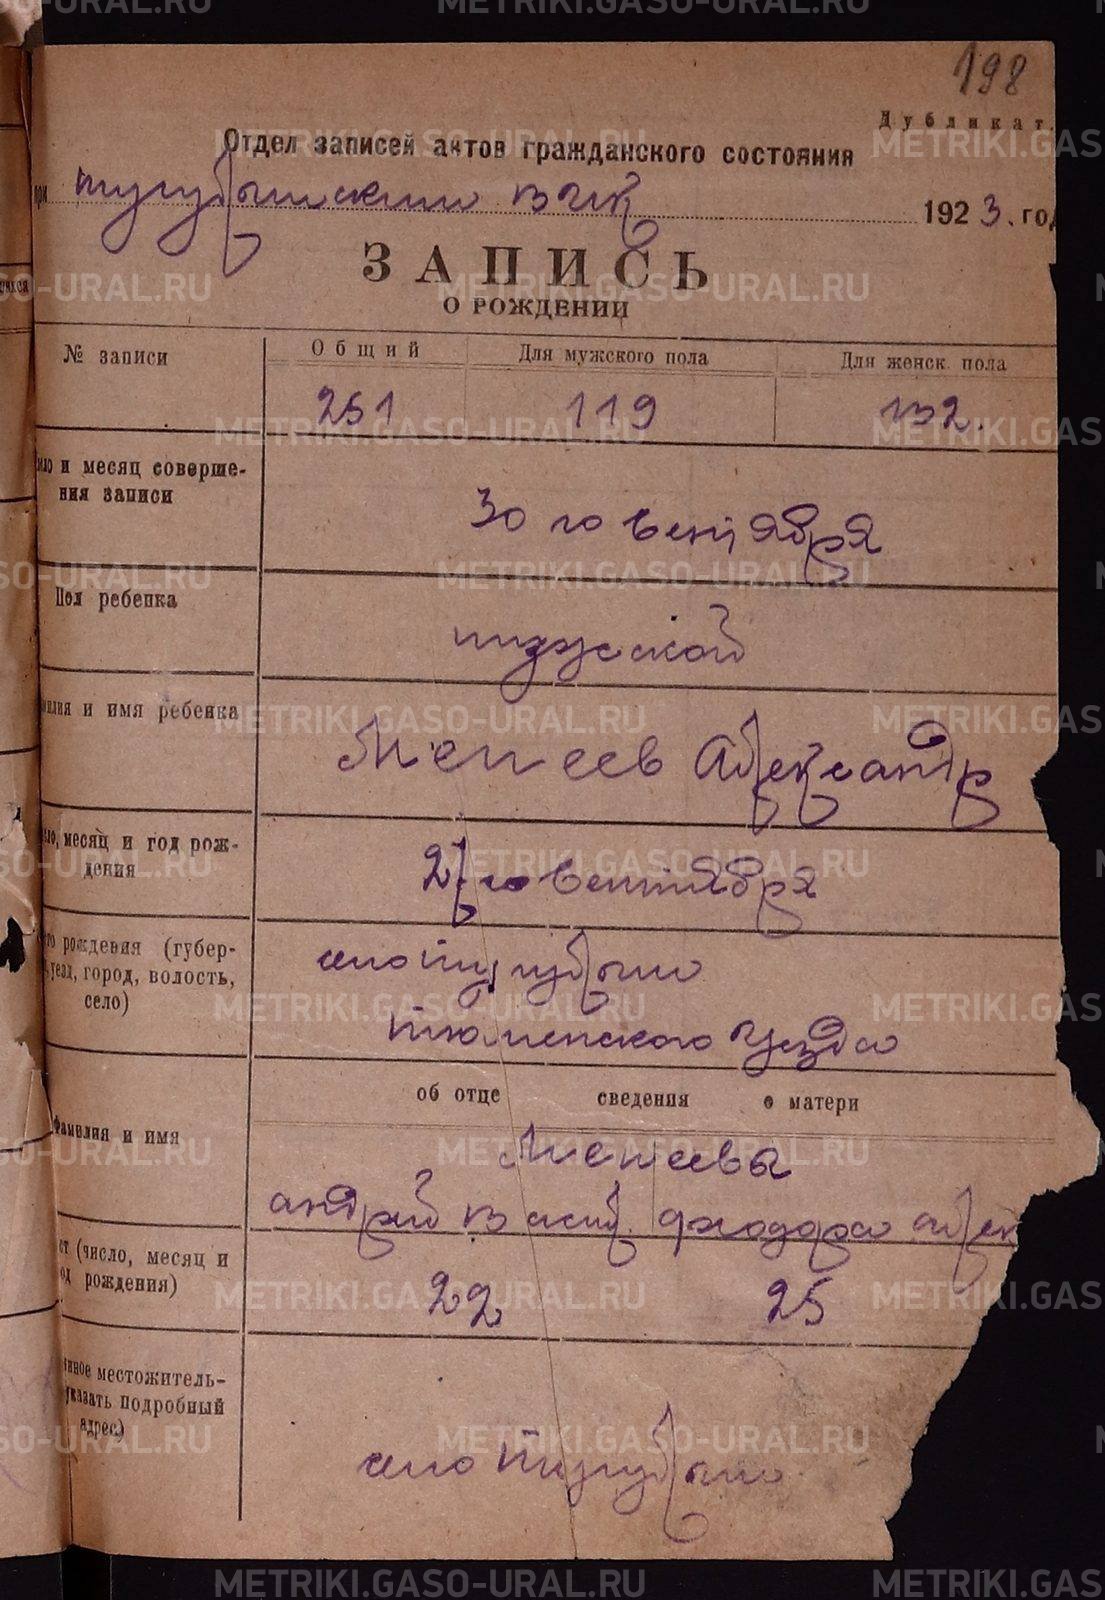 198
Дубликат.
Отдел записей актов гражданского состояния
при тугулымским вик 1923. год
ЗАПИСЬ
О РОЖДЕНИИ
№ записи
Общий
Для мужского пола
Для женск. пола
251
119
132.
ло и месяц соверше-
ния записи
30 го Сентября
Пол ребенка
мужской
милия и имя ребенка
Александр
ло, месяц и год рож-
дения
27 го Сентября
то рождения (губер-
уезд, город, волость,
село)
село тугулым
тюменского уезда
об отце сведения о матери
Фамилия и имя
андрей васил федора алек
ст (число, месяц и
од рождения)
22
25
нное местожитель-
указать подробный
адрес)
село тугулым
METRIKI.GASO-URAL.RU